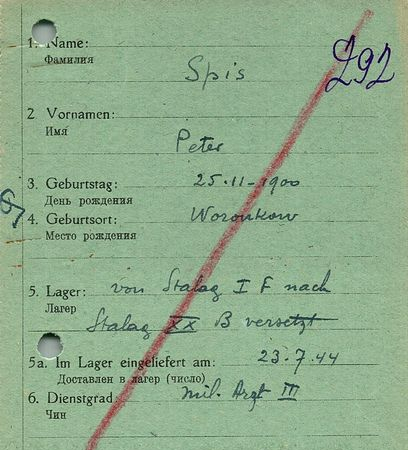 292
1. Name:
Фамилия
Spis
2 Vornamen:
Имя
Peter
3. Geburtstag: 25.11-1900
День рождения
4. Geburtsort: Woronkow
Место рождения
5. Lager: von Stalag I F nach
Лагер
Stalag XX B versetzt
5a. Im Lager eingeliefert am: 23.7.44
Доставлен в лагер (число)
6. Dienstgrad: mil. Arzt III
Чин